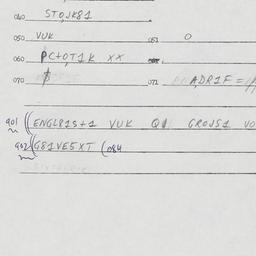 040 STO,JK81
050 VUK 051 O
060 PC+OT1K XX
070 $ 071 ADR1F=
901 ((ENGL81S+1 VUK Q1 GROJS1 VO
902 ((G81VE5XT (084